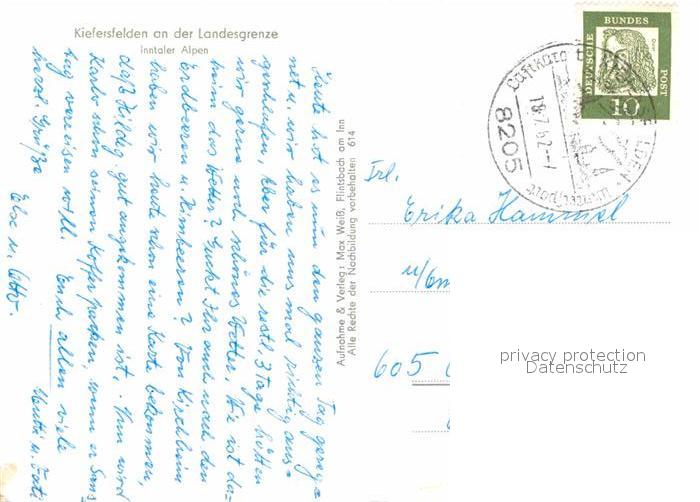 Kiefersfelden an der Landesgrenze
Inntaler Alpen
Heute hat es nun den ganzen Tag gereg=
net u. wir haben uns mal richtig aus=
geschlafen. Aber für die restl. 3 Tage hätten
wir gerne noch schönes Wetter. Wie ist da=
heim das Wetter? Guckt Ihr auch nach den
Erdbeeren u. Himbeeren? Von Kirchheim
haben wir heute schon eine Karte bekommen,
daß Hildeg. gut angekommen ist. Nun wird
Karlo schon seinen Koffer packen, wenn er Sams
tag verreisen will. Euch allen viele
herzl. Grüße Mutti u. Vati
Else u. Otto.
Aufnahme & Verlag: Max Weiß, Flintsbach am Inn
Alle Rechte der Nachbildung vorbehalten 614
DEUTSCHE BUNDES POST
10
Luftkurort
18.7.62-7
8205
Frl.
Erika Hammel
605
privacy protection
Datenschutz